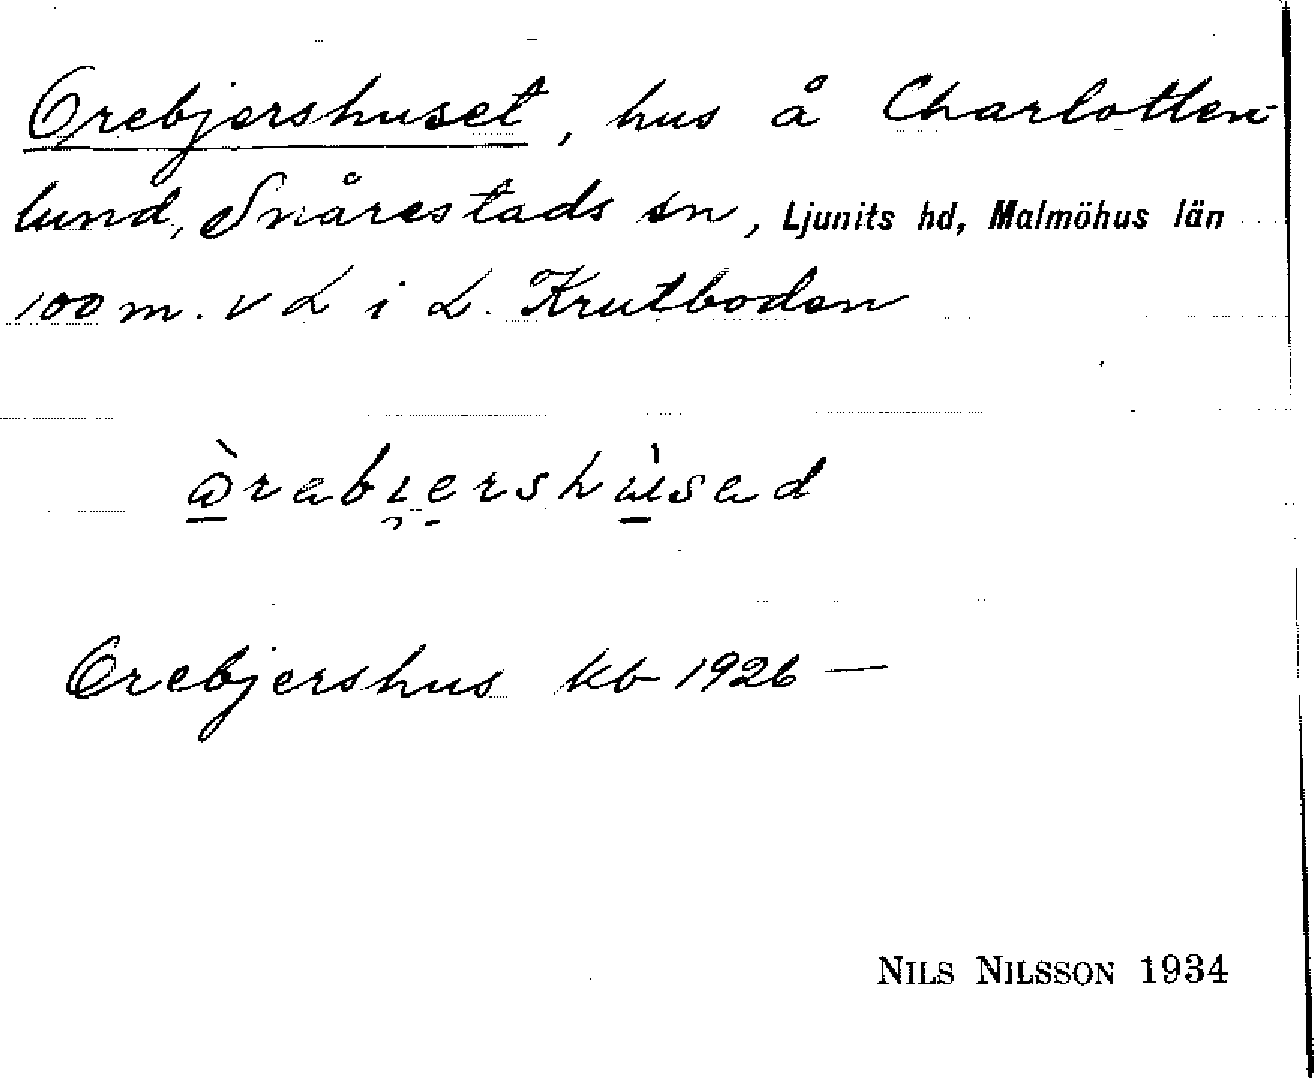 Orebjershuset, hus å Charlotten-
lund, Snårestads sn, Ljunits hd, Malmöhus län
100 m. v L i L. Krutboden
Orebjershus kb 1926 —
NILS NILSSON 1934